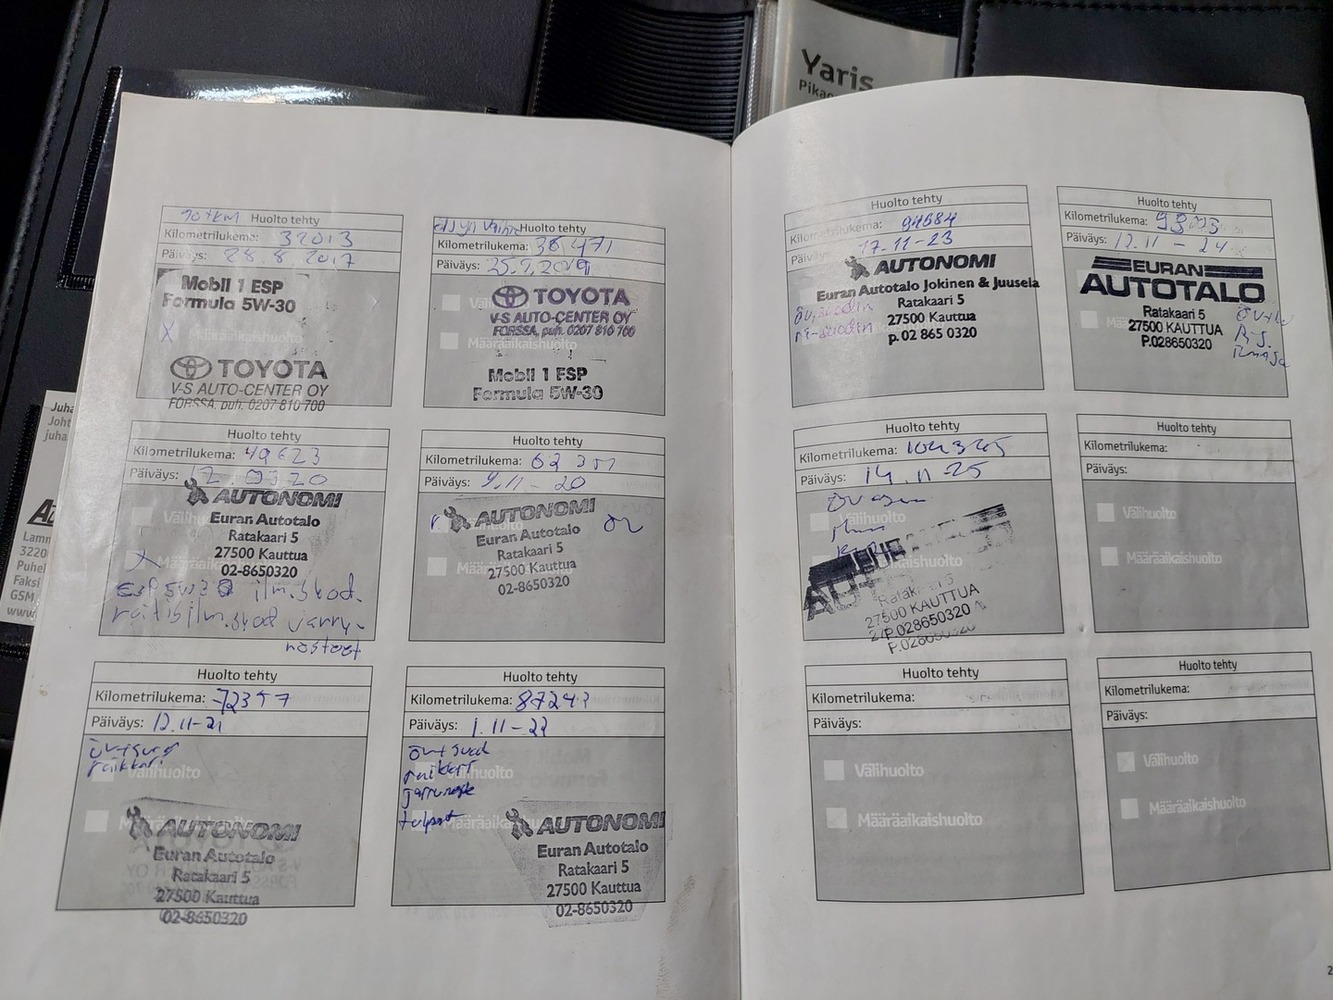 Yaris
Juha
Joht
juha
Lamm
3220
Puhel
Faksi
GSM
www
Huolto tehty
Kilometrilukema: 32013
Päiväys: 28.8.2017
Mobil 1 ESP
Formula 5W-30
X Määräaikaishuolto
TOYOTA
V-S AUTO-CENTER OY
FORSSA, puh. 0207 810 700
Huolto tehty
Kilometrilukema: 36471
Päiväys: 25.9.2019
TOYOTA
V-S AUTO-CENTER OY
FORSSA, puh. 0207 810 700
Määräaikaishuolto
Mobil 1 ESP
Formula 5W-30
Huolto tehty
Kilometrilukema: 49623
Päiväys:
AUTONOMI
Välihuolto
Euran Autotalo
Ratakaari 5
27500 Kauttua
X Määräaikaishuolto
02-8650320
ESP 5W30 ilm.suod.
raitisilm.suod jarru-
nesteet
Huolto tehty
Kilometrilukema:
Päiväys: 9.11-20
AUTONOMI
Välihuolto
Euran Autotalo
Ratakaari 5
27500 Kauttua
Määräaikaishuolto
02-8650320
Huolto tehty
Kilometrilukema: 72357
Päiväys: 12.11-21
raikkari
Välihuolto
Määräaikaishuolto
AUTONOMI
Euran Autotalo
Ratakaari 5
27500 Kauttua
02-8650320
Huolto tehty
Kilometrilukema: 87243
Päiväys: 1.11-22
raikkari
Välihuolto
jarruneste
tulpat
Määräaikaishuolto
AUTONOMI
Euran Autotalo
Ratakaari 5
27500 Kauttua
02-8650320
Huolto tehty
Kilometrilukema: 91684
Päiväys: 17.11-23
AUTONOMI
Euran Autotalo Jokinen & Juusela
Ratakaari 5
27500 Kauttua
p. 02 865 0320
Huolto tehty
Kilometrilukema:
Päiväys: 12.11-24
EURAN
AUTOTALO
Ratakaari 5
27500 KAUTTUA
P.028650320
Huolto tehty
Kilometrilukema: 104325
Päiväys: 14.11-25
Ratakaari 5
27500 KAUTTUA
P.028650320
P.028650320
Huolto tehty
Kilometrilukema:
Päiväys:
Välihuolto
Määräaikaishuolto
Huolto tehty
Kilometrilukema:
Päiväys:
Välihuolto
Määräaikaishuolto
Huolto tehty
Kilometrilukema:
Päiväys:
Välihuolto
Määräaikaishuolto
2